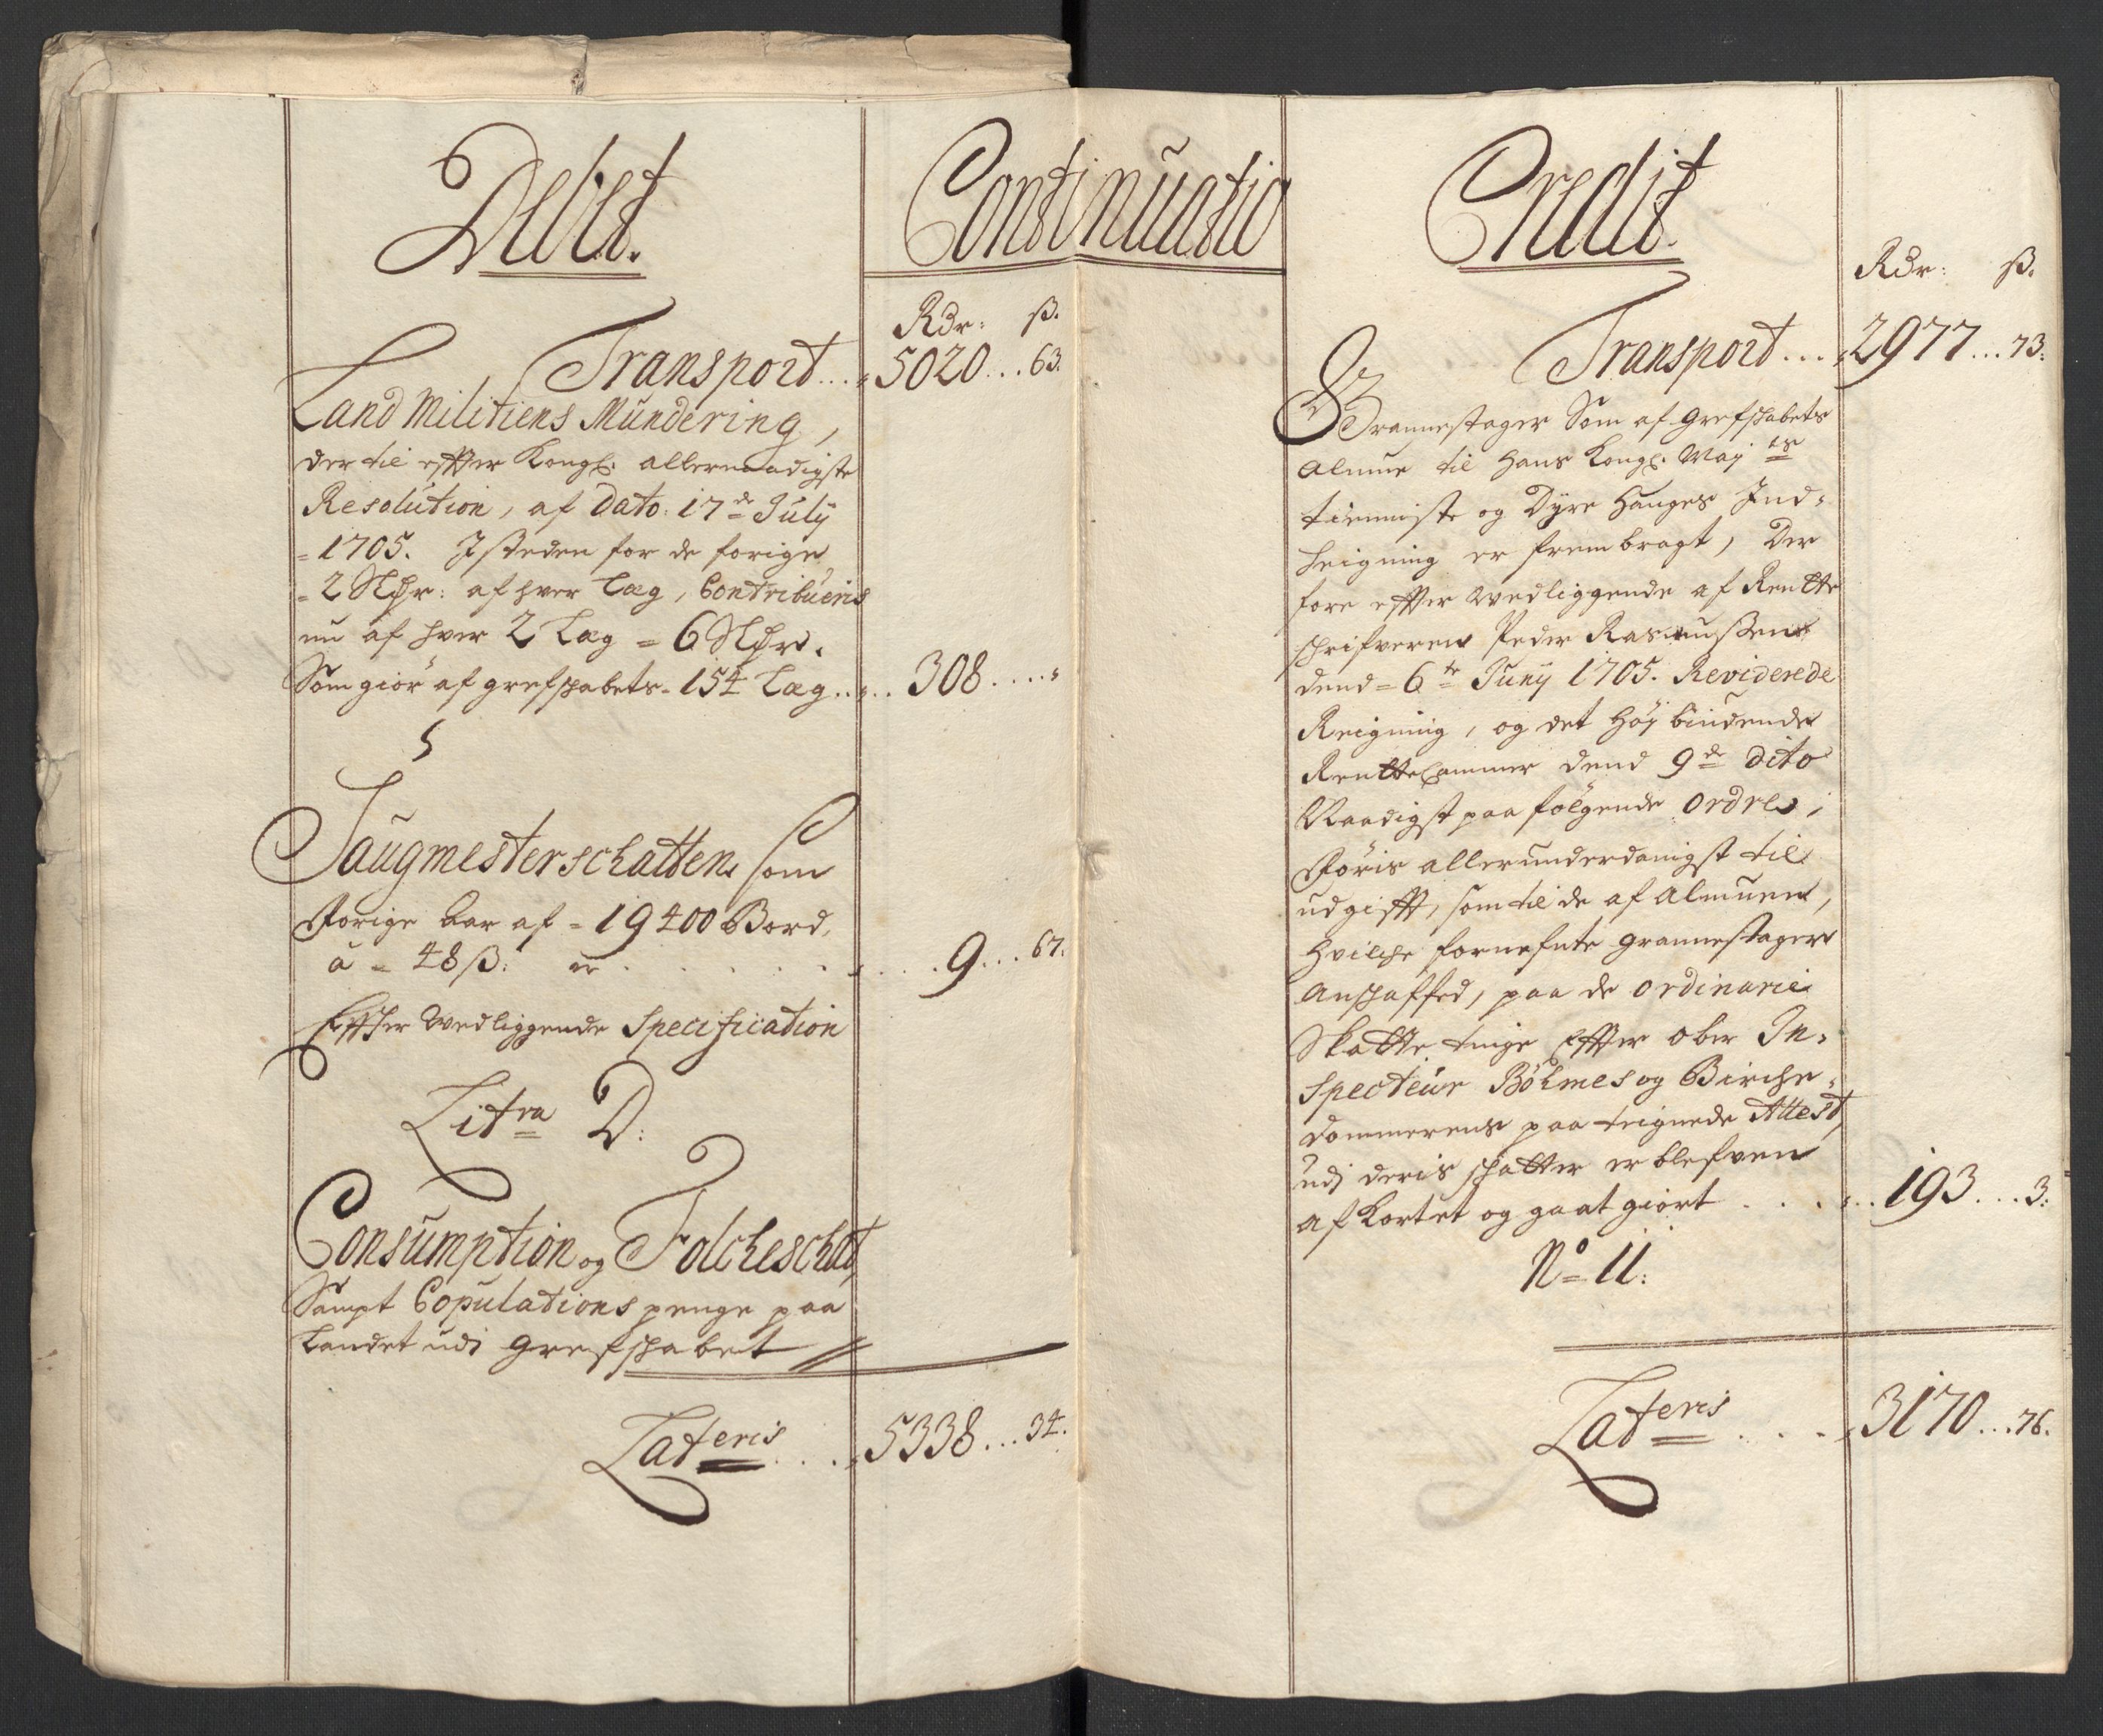 Debet.
Continuatio
Rdr: ß.
Transport . . . 5020 . . . 63.
Land Militiens Mundering,
der til effter Kongl: allernaadigste
Resolution, af Dato 17de July
1705. J steden for de forige
2 Rdr: af hver Læg, Contribueris
nu af hver 2 Læg = 6 Rdr.
Som giør af grefskabets 154 Læg . . . 308 . . . "
Saugmesterschatten som
Forige aar af = 19400 Bord,
à = 48 ß: er . . . . . 9 . . . 67.
Effter Wedliggende Specification
Litra D:
Consumption og Folcheschat,
Sampt Copulations penge paa
Landet udi Grefskabet
Lateris . . . 5338 . . . 34.
Credit.
Rdr: ß.
Transport . . . 2977 . . . 73.
Grannestager Som af Grefskabets
Almue til Hans Kongl. Mayts
tienniste og Dyre Hauges Ind-
heigning er frembragt, Der
fore effter Wedliggende af Rentte
schrifveren Peder Rasmussen
dend 6te Juny 1705. Reviderede
Reigning, og det Høy bindende
Renttecammer dend 9de dito
Naadigst paa følgende Ordre,
Føris allerunderdanigst til
udgifft, som til de af Almuen,
Hvilche fornefnte grannestager
Anskaffed, paa de ordinarie
Skatte tinge Effter Ober In-
specteur Bøhmes og Birche-
dommerens paa teignede Attest,
udi deris skatter er blefven
afkortet og gaat giort . . . . 193 . . . 3.
No 11:
Lateris . . . 3170 . . . 76.